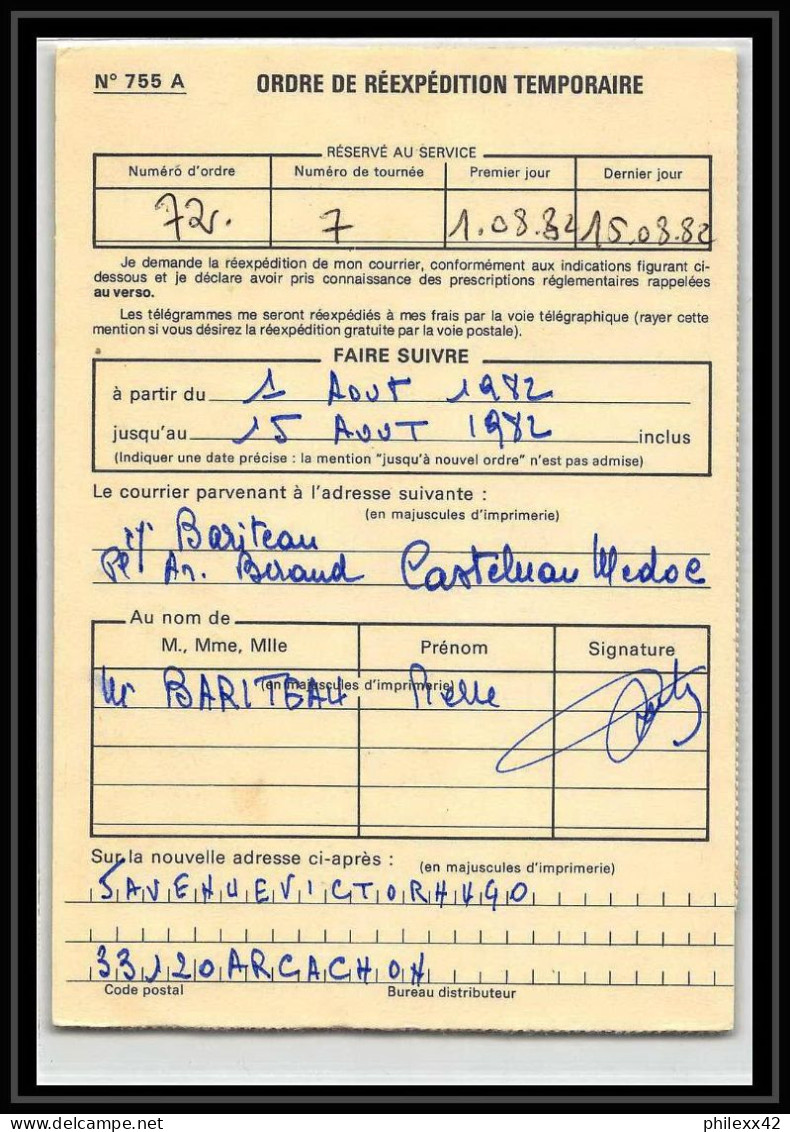 N° 755 A ORDRE DE RÉEXPÉDITION TEMPORAIRE
RÉSERVÉ AU SERVICE
Numéro d'ordre Numéro de tournée Premier jour Dernier jour
72. 7 1.08.82 15.08.82
Je demande la réexpédition de mon courrier, conformément aux indications figurant ci-
dessous et je déclare avoir pris connaissance des prescriptions réglementaires rappelées
au verso.
Les télégrammes me seront réexpédiés à mes frais par la voie télégraphique (rayer cette
mention si vous désirez la réexpédition gratuite par la voie postale).
FAIRE SUIVRE
à partir du 1 AOUT 1982
jusqu'au 15 AOUT 1982 inclus
(Indiquer une date précise : la mention "jusqu'à nouvel ordre" n'est pas admise)
Le courrier parvenant à l'adresse suivante :
(en majuscules d'imprimerie)
Bariteau
Pl An. Beraud Castelnau Medoc
Au nom de
M., Mme, Mlle Prénom Signature
(en majuscules d'imprimerie)
Mr BARITEAU Pierre
Sur la nouvelle adresse ci-après : (en majuscules d'imprimerie)
5 AVENUE VICTOR HUGO
33120 ARCACHON
Code postal Bureau distributeur
philexx42